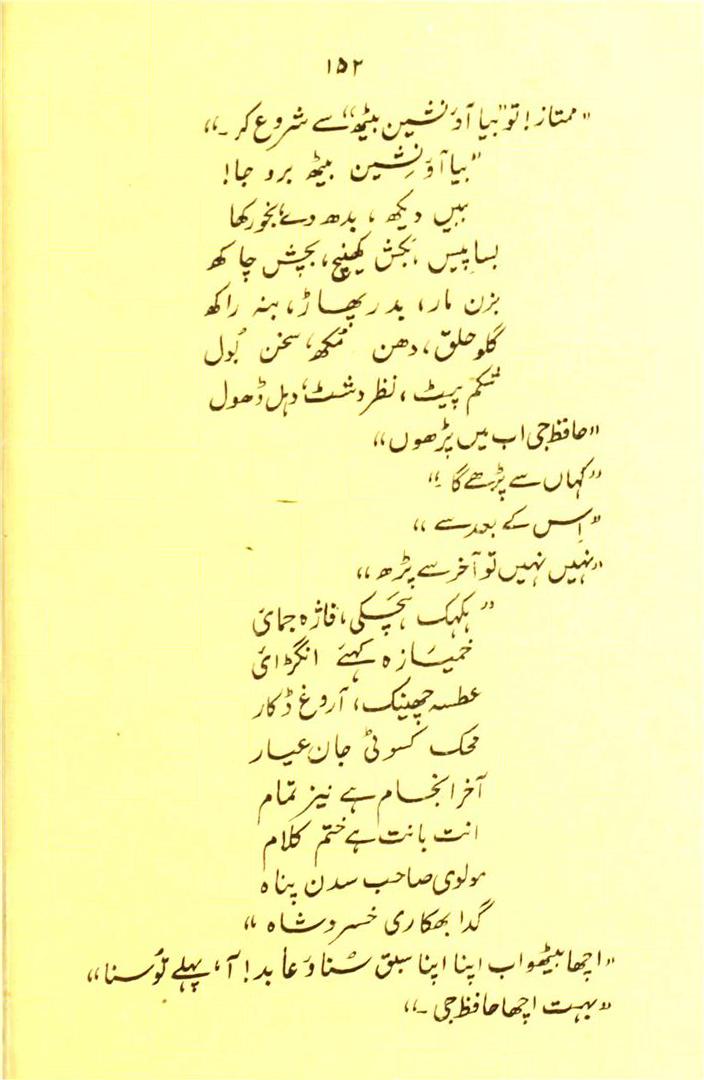 ۱۵۲
"ممتاز! تو "بیا آو نشین بیٹھ" سے شروع کر۔"
"بیا آو نشین بیٹھ برو جا!
ببیں دیکھ، بدھ دے، بخور کھا
بسا پیس، بکش کھینچ، بچش چاکھ
بزن مار، بدر پھاڑ، بنہ راکھ
گلو حلق، دھن مُکھ، سخن بُول
شکم پیٹ، نظر دشٹ، دہل ڈھول
"حافظ جی اب میں پڑھوں"
"کہاں سے پڑھے گا۔"
"اِس کے بعد سے"
"نہیں نہیں تو آخر سے پڑھ"
"ہکہک ہچکی، فاژہ جمائ
خمیازہ کہئے انگڑائ
عطسہ چھینک، آروغ ڈکار
محک کسوٹی جان عیار
آخر انجام ہے نیز تمام
انت بانت ہے ختم کلام
مولوی صاحب سدن پناہ
گدا بھکاری خسرو شاہ"
"اچھا بیٹھو اب اپنا اپنا سبق سُناو عابد! آ، پہلے تُو سنا"
"بہت اچھا حافظ جی۔"